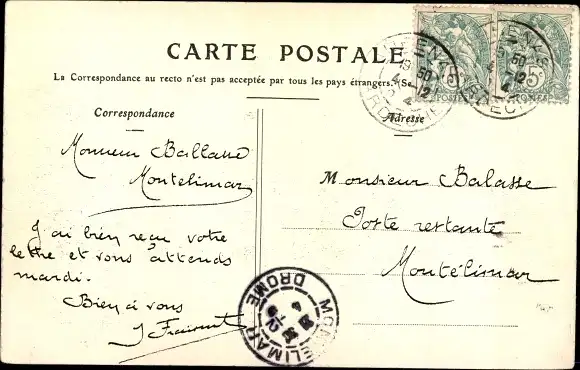 CARTE POSTALE
La Correspondance au recto n'est pas acceptée par tous les pays étrangers. (Se
Correspondance
Adresse
Monsieur
Montélimar
J'ai bien reçu votre
lettre et vous attends
mardi.
Bien à vous
Monsieur Balasse
Poste restante
Montélimar
5c
POSTES
5c
POSTES
ARDECHE
DROME